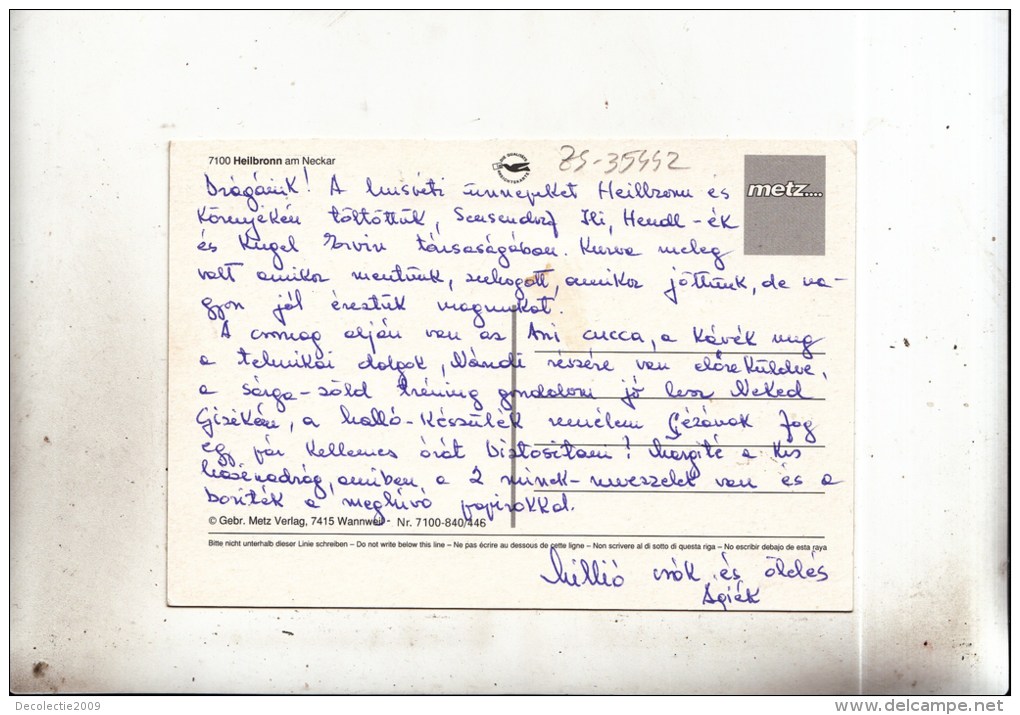 7100 Heilbronn am Neckar
ZS-35442
metz....
Drágáink! A húsvéti ünnepeket Heilbronn és
környékén töltöttük, Ili, Hendl-ék
és Kugel Ervin társaságában. Kurva meleg
volt amikor mentünk, amikor jöttünk, de na-
gyon jól éreztük magunkat.
A csomag alján van az Ani cucca, a kávék meg
a technikai dolgok, Nándi részére van előreküldve,
a sárga-zöld tréning gondolom jó lesz Neked
Gizikém, a halló-készülék remélem Gézának fog
egy pár kellemes órát biztosítani! Margité a kis
nadrág, amiben a 2 van és a
boríték a meghívó papirokkal.
© Gebr. Metz Verlag, 7415 Wannweil - Nr. 7100-840/446
Bitte nicht unterhalb dieser Linie schreiben – Do not write below this line – Ne pas écrire au dessous de cette ligne – Non scrivere al di sotto di questa riga – No escribir debajo de esta raya
Millió csók és ölelés
Ágiék
Decolectie2009
www.delcampe.net